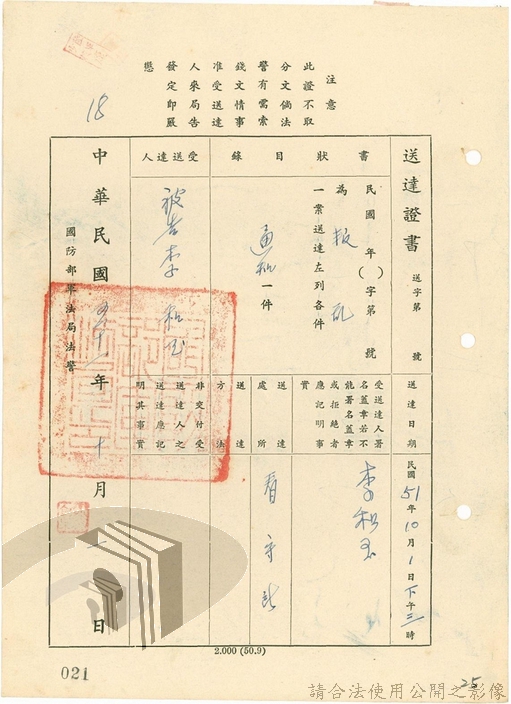 注意
此證不取
分文倘法
警有需索
錢文情事
准受送達
人來局告
發定即嚴
懲
18
送達證書
送字第 號
書狀目錄
民國 年( )字第 號
為 叛亂
一案送達左列各件
通知一件
受送達人
被告李
中華民國五十一年十月一日
國防部軍法局法警
送達日期
民國51年10月1日下午三時
受送達人署
名蓋章若不
能署名蓋章
或拒絕者
應記明事
實
李
送達處所
看守所
送達方法
非交付受
送達人之
送達應記
明其事實
2.000 (50.9)
021
25
請合法使用公開之影像